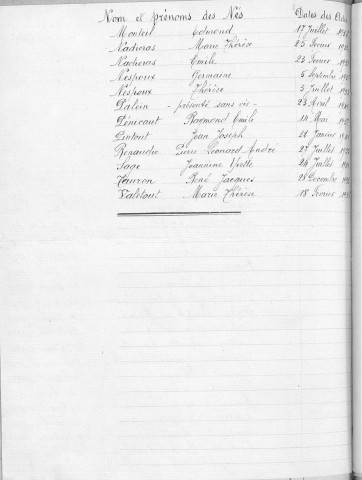 Nom et prénoms des Nés Dates des
Monteil Edmond 17 Juillet
Nadieras Marie Thérèse 25 Février
Nadieras Emile 23 Février
Nespoux Germaine 5 Septembre
Nespoux Thérèse 3 Juillet
Palein - présenté sans vie - 23 Avril
Pénicaut Raymond Emile 14 Mai
Pintout Jean Joseph 21 Janvier
Renaudie Pierre Léonard André 27 Juillet
Sage Jeannine Yvette 24 Juillet
Tauron René Jacques 28 Décembre
Valetout Marie Thérèse 18 Février